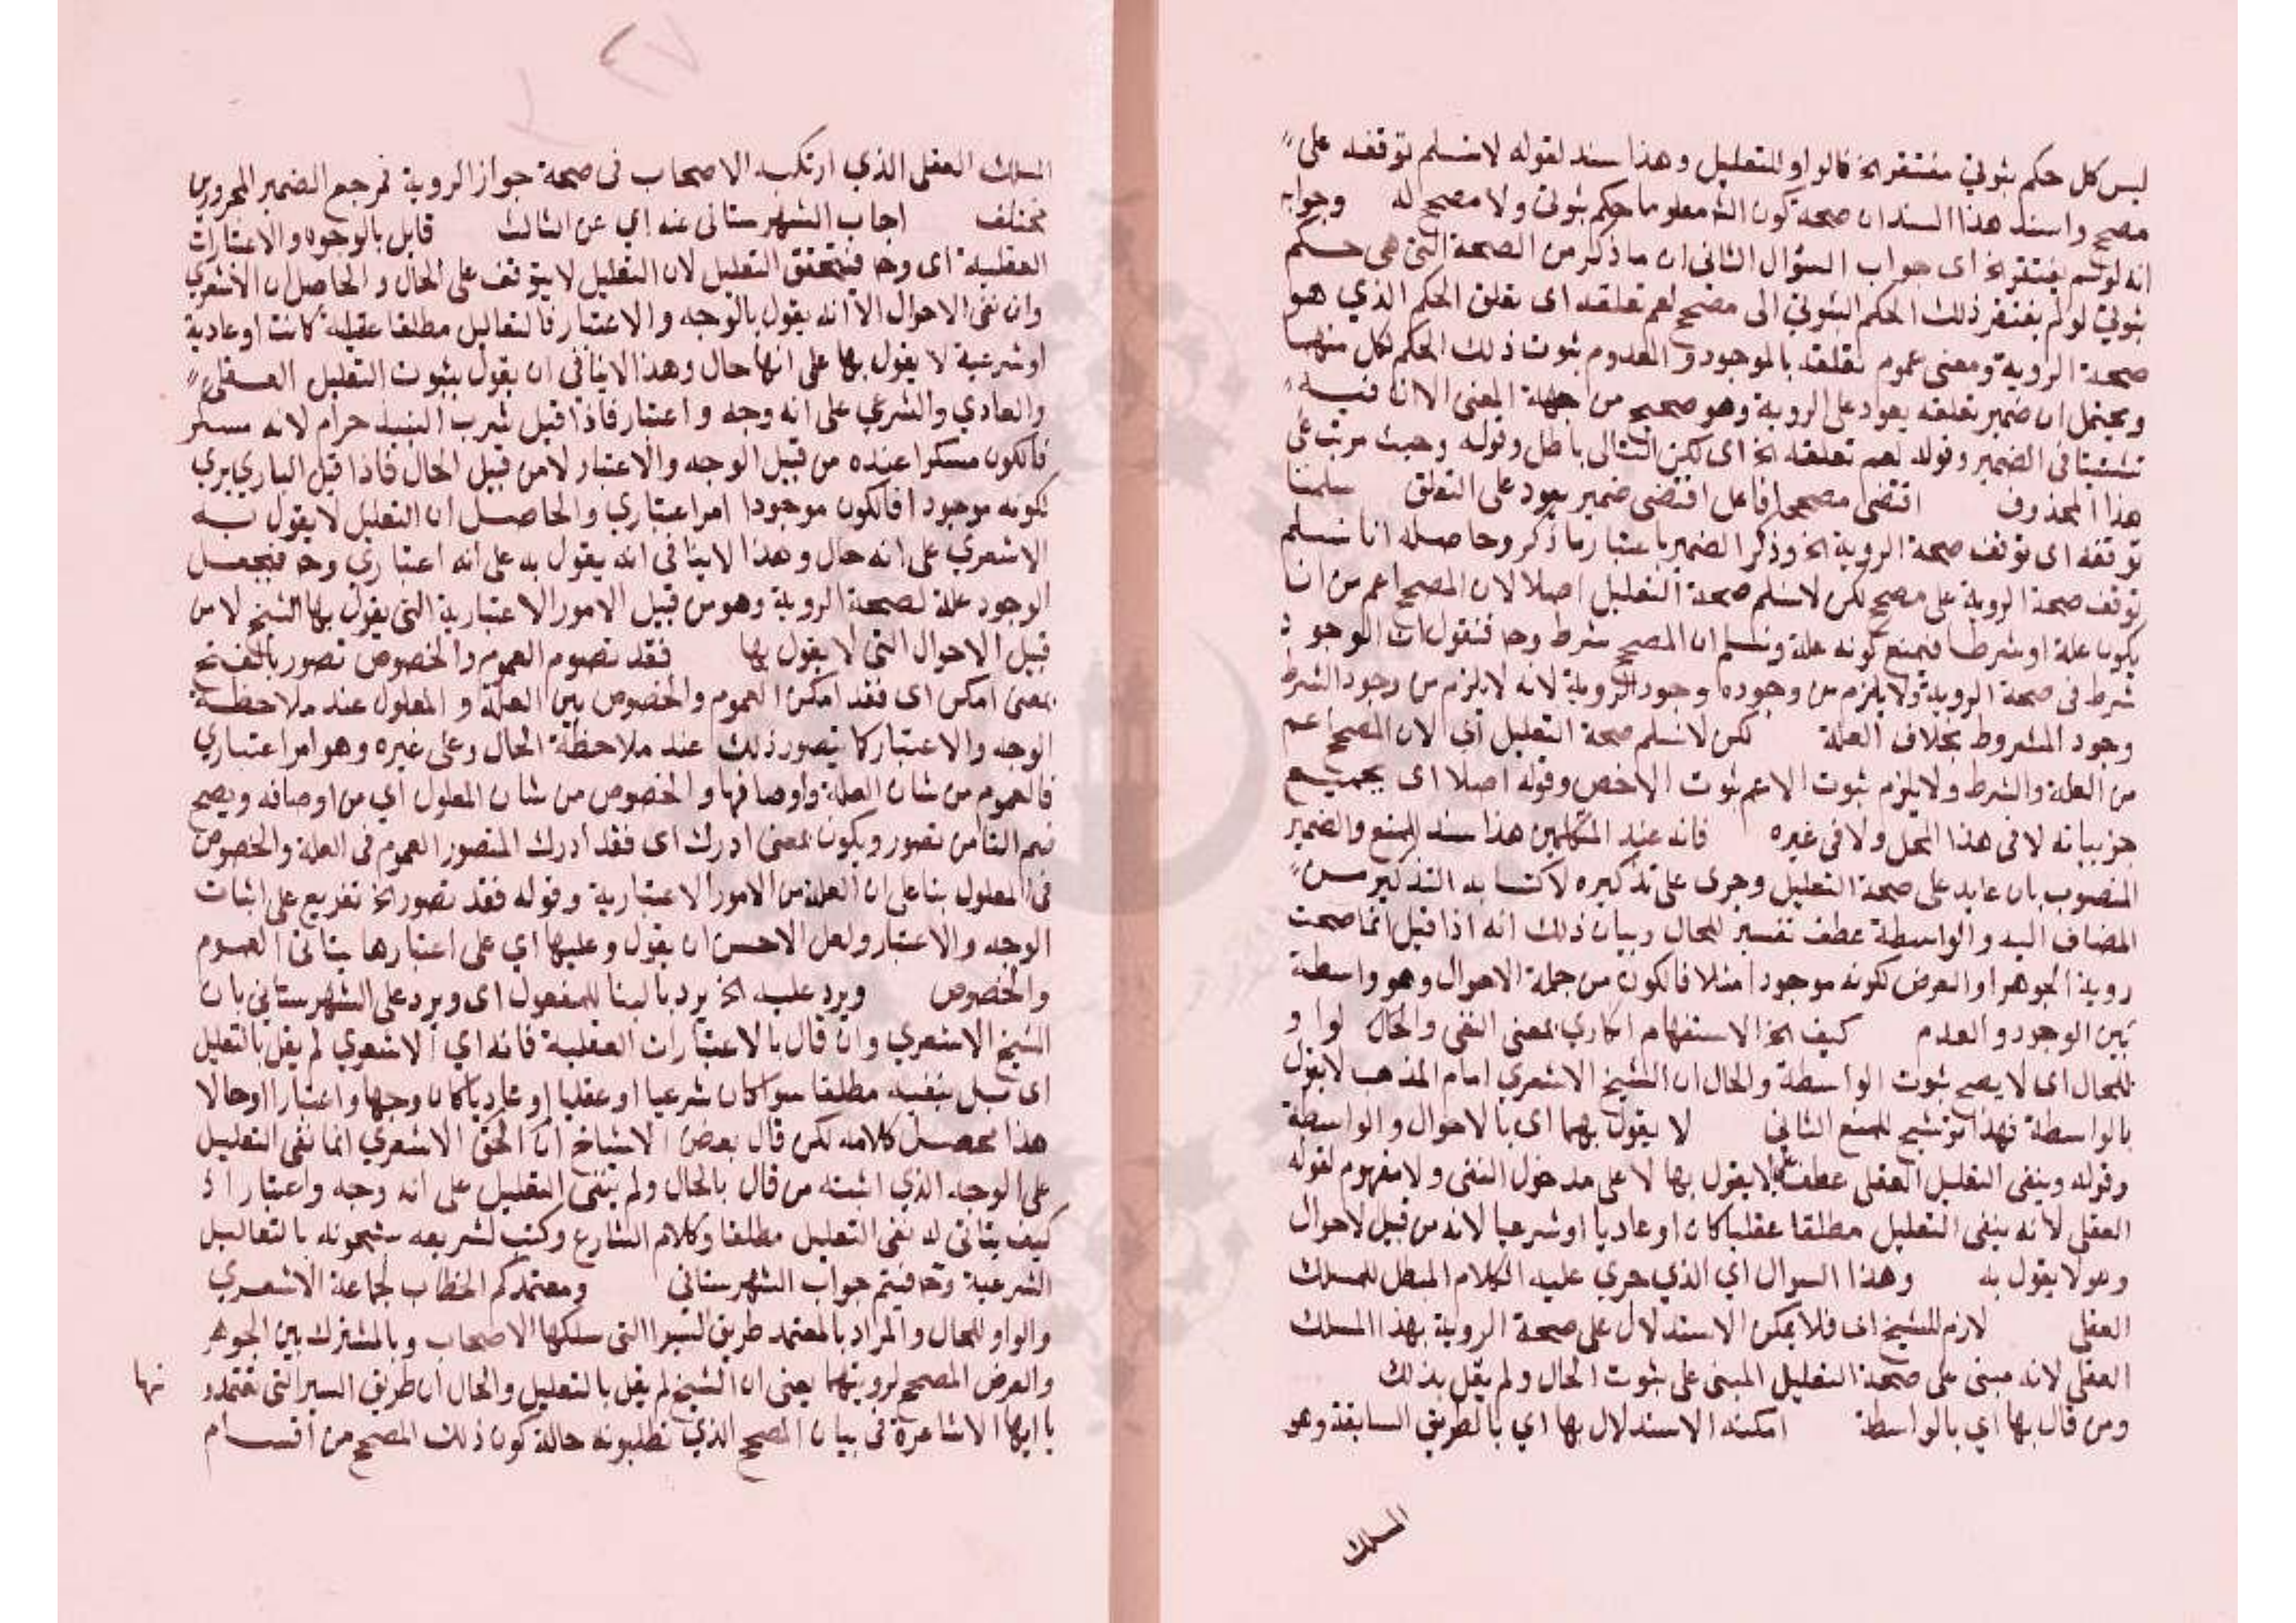 ليس كل حكم ثبوتي مفتقر الخ فالواو للتعليل وهذا سند لقوله لا نسلم توقفه على
مصحح واسند هذا السند ان صحة كون الشئ معلوما حكم ثبوتي ولا مصحح له وجوابه
انه لو لم يفتقر الخ اى جواب السؤال الثاني ان ما ذكر من الصحة التي هي حكم
ثبوتي لو لم يفتقر ذلك الحكم الثبوتي الى مصحح لعم تعلقه اى تعلق الحكم الذي هو
صحة الروية ومعنى عموم تعلقه بالموجود والمعدوم ثبوت ذلك الحكم لكل منهما
ويحتمل ان ضمير تعلقه يعود على الروية وهو صحيح من جهة المعنى الا ان فيه
تشتيتا في الضمير وقوله لعم تعلقه الخ اى لكن التالى باطل وقوله وحيث مرتب على
هذا المحذوف اقتضى مصححا فاعل اقتضى ضمير يعود على التعلق سلمنا
توقفه اى توقف صحة الروية الخ وذكر الضمير باعتبار ما ذكر وحاصله انا نسلم
توقف صحة الروية على مصحح لكن لا نسلم صحة التعليل اصلا لان المصحح اعم من ان
يكون علة او شرطا فيمنع كونه علة ونسلم ان المصحح شرط وح فنقول ان الوجود
شرط فى صحة الروية ولا يلزم من وجوده وجود الروية لانه لا يلزم من وجود الشرط
وجود المشروط بخلاف العلة لكن لا نسلم صحة التعليل اى لان المصحح اعم
من العلة والشرط ولا يلزم ثبوت الاعم ثبوت الاخص وقوله اصلا اى بجميع
جزيياته لا فى هذا المحل ولا فى غيره فانه عند المتكلمين هذا سند للمنع والضمير
المنصوب بان عايد على صحة التعليل وجرى على تذكيره لاكتسابه التذكير من
المضاف اليه والواسطة عطف تفسير للحال وبيان ذلك انه اذا قيل انما صحت
روية الجوهر او العرض لكونه موجودا مثلا فالكون من جملة الاحوال وهو واسطة
بين الوجود والعدم كيف الخ الاستفهام انكاري بمعنى النفى والحال لواو
للحال اى لا يصح ثبوت الواسطة والحال ان الشيخ الاشعري امام المذهب لا يقول
بالواسطة فهذا توشيح للمنع الثاني لا يقول بهما اى بالاحوال والواسطة
وقوله وينفى التعليل العقلى عطف على لا يقول بها لا على مدخول النفى ولا مفهوم لقوله
العقلى لانه ينفى التعليل مطلقا عقليا كان او عاديا او شرعيا لانه من قبيل لاحوال
وهو لا يقول به وهذا السوال اي الذي جرى عليه الكلام المبطل للمسلك
العقلى لازم للشيخ اى فلا يمكن الاستدلال على صحة الروية بهذا المسلك
العقلى لانه مبنى على صحة التعليل المبنى على ثبوت الحال ولم يقل بذلك
ومن قال بها اي بالواسطة امكنه الاستدلال بها اي بالطريق السابقة وهو
المسلك
المسلك العقلى الذي ارتكبه الاصحاب فى صحة جواز الروية فمرجع الضمير المجرورين
مختلف اجاب الشهرستانى عنه اي عن الثالث قابل بالوجوه والاعتبارات
العقلية اى وح فيتحقق التعليل لان التعليل لا يتوقف على الحال والحاصل ان الاشعري
وان نفى الاحوال الا انه يقول بالوجه والاعتبار فالتعاليل مطلقا عقلية كانت او عادية
او شرعية لا يقول بها على انها حال وهذا لا ينافى ان يقول بثبوت التعليل العقلى
والعادي والشرعي على انه وجه واعتبار فاذا قيل شرب النبيذ حرام لانه مسكر
فالكون مسكرا عنده من قبيل الوجه والاعتبار لا من قبيل الحال فاذا قيل الباري يري
لكونه موجودا فالكون موجودا امر اعتباري والحاصل ان التعليل لا يقول به
الاشعري على انه حال وهذا لا ينافى انه يقول به على انه اعتباري وح فيجعل
الوجود علة لصحة الروية وهو من قبيل الامور الاعتبارية التى يقول بها الشيخ لا من
قبيل الاحوال التى لا يقول بها فقد تصور العموم والخصوص تصور بالفتح
بمعنى امكن اى فقد امكن العموم والخصوص بين العلة والمعلول عند ملاحظة
الوجه والاعتبار كما يتصور ذلك عند ملاحظة الحال وعلى غيره وهو امر اعتباري
فالعموم من شان العلة واوصافها والخصوص من شان المعلول اي من اوصافه ويصح
ضم التا من تصور ويكون بمعنى ادرك اى فقد ادرك المتصور العموم فى العلة والخصوص
فى المعلول بنا على ان العلة من الامور الاعتبارية وقوله فقد تصور الخ تفريع على اثبات
الوجه والاعتبار ولعل الاحسن ان يقول وعليها اي على اعتبارها يتاتى العموم
والخصوص ويرد عليه الخ يرد بالبنا للمفعول اى ويرد على الشهرستاني بان
الشيخ الاشعري وان قال بالاعتبارات العقلية فانه اي الاشعري لم يقل بالتعليل
اى بل بنفيه مطلقا سوا كان شرعيا او عقليا او عاديا كان وجها واعتبارا او حالا
هذا محصل كلامه لكن قال بعض الاشياخ ان الحق الاشعري انما نفى التعليل
على الوجه الذي اثبته من قال بالحال ولم ينفى التعليل على انه وجه واعتبار اذ
كيف يتاتى له نفى التعليل مطلقا وكلام الشارع وكتب لشريعه مشحونه بالتعاليل
الشرعية وح فيتم جواب الشهرستانى ومعتمدكم الخطاب لجماعة الاشعري
والواو للحال والمراد بالمعتمد طريق السبر التى سلكها الاصحاب وبالمشترك بين الجوهر
والعرض المصحح لرويتهما يعنى ان الشيخ لم يقل بالتعليل والحال ان طريق السبر التى تعتمدو نها
يا ايها الاشاعرة فى بيان المصحح الذي تطلبونه حالة كون ذلك المصحح من اقسام